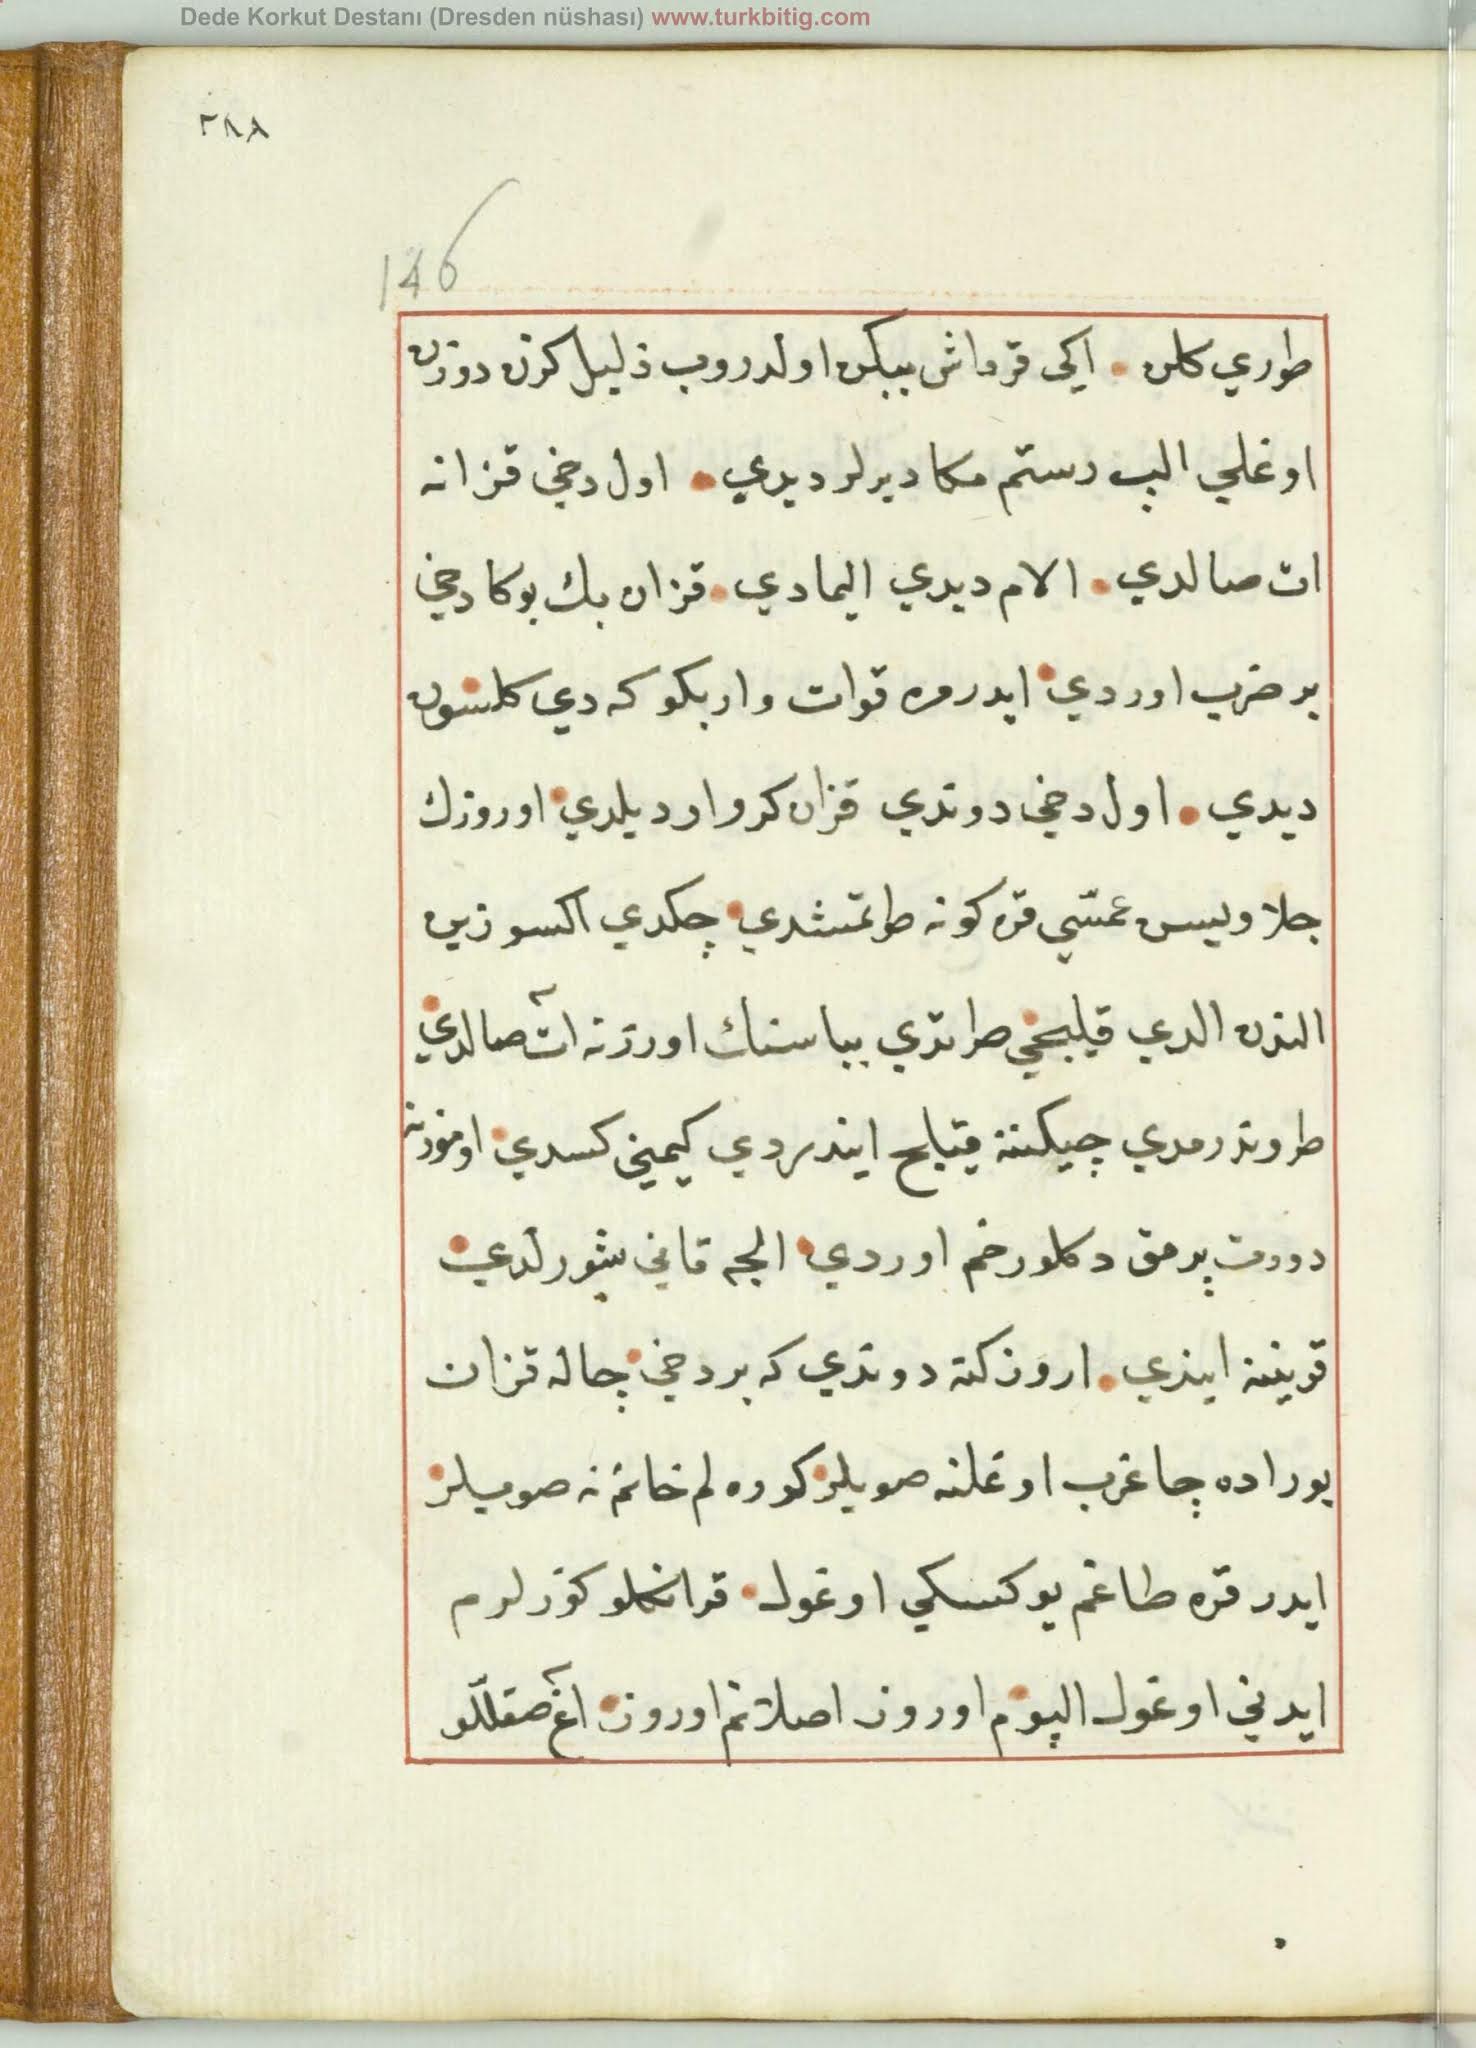 Dede Korkut Destanı (Dresden nüshası) www.turkbitig.com
٢٨٨
146
طوري كلن ايكی قرداش ببكن اولدروب ذليل كزن دوزن
اوغلي الپ رستم مكا ديرلر ديدي اول دخی قزانه
ات صالدي الام ديدي اليمادي قزان بك بوكا دخی
بر ضرب اوردي ايدر مره قوات واربكوكه دي كلسون
ديدي اول دخی دوندي قزان كرو اوردیلدي اوروزك
جلاويسن عمسّی قره كونه طاتمشدي چكدي اكسوزين
النزن الدي قيليجنی صراتدي بباسنك اورزنه آت صالدي
طروندرمدي چيكننه قيليج ايندردي كيمينی كسدي اوموزنه
دورت پرمق دكلو زخم اوردي الجه قانی شورلدي
قوينه ايندي اروز كنه دوندي كه بر دخی چاله قزان
بوراده چاغرب اوغلنه صويلر كوره لم خانم نه صويلر
ايدر قره طاغم يوكسكي اوغول قرانكلو كوزلرم
ايدنی اوغول الپوم اوروز اصلانم اوروز آغ صقللّو